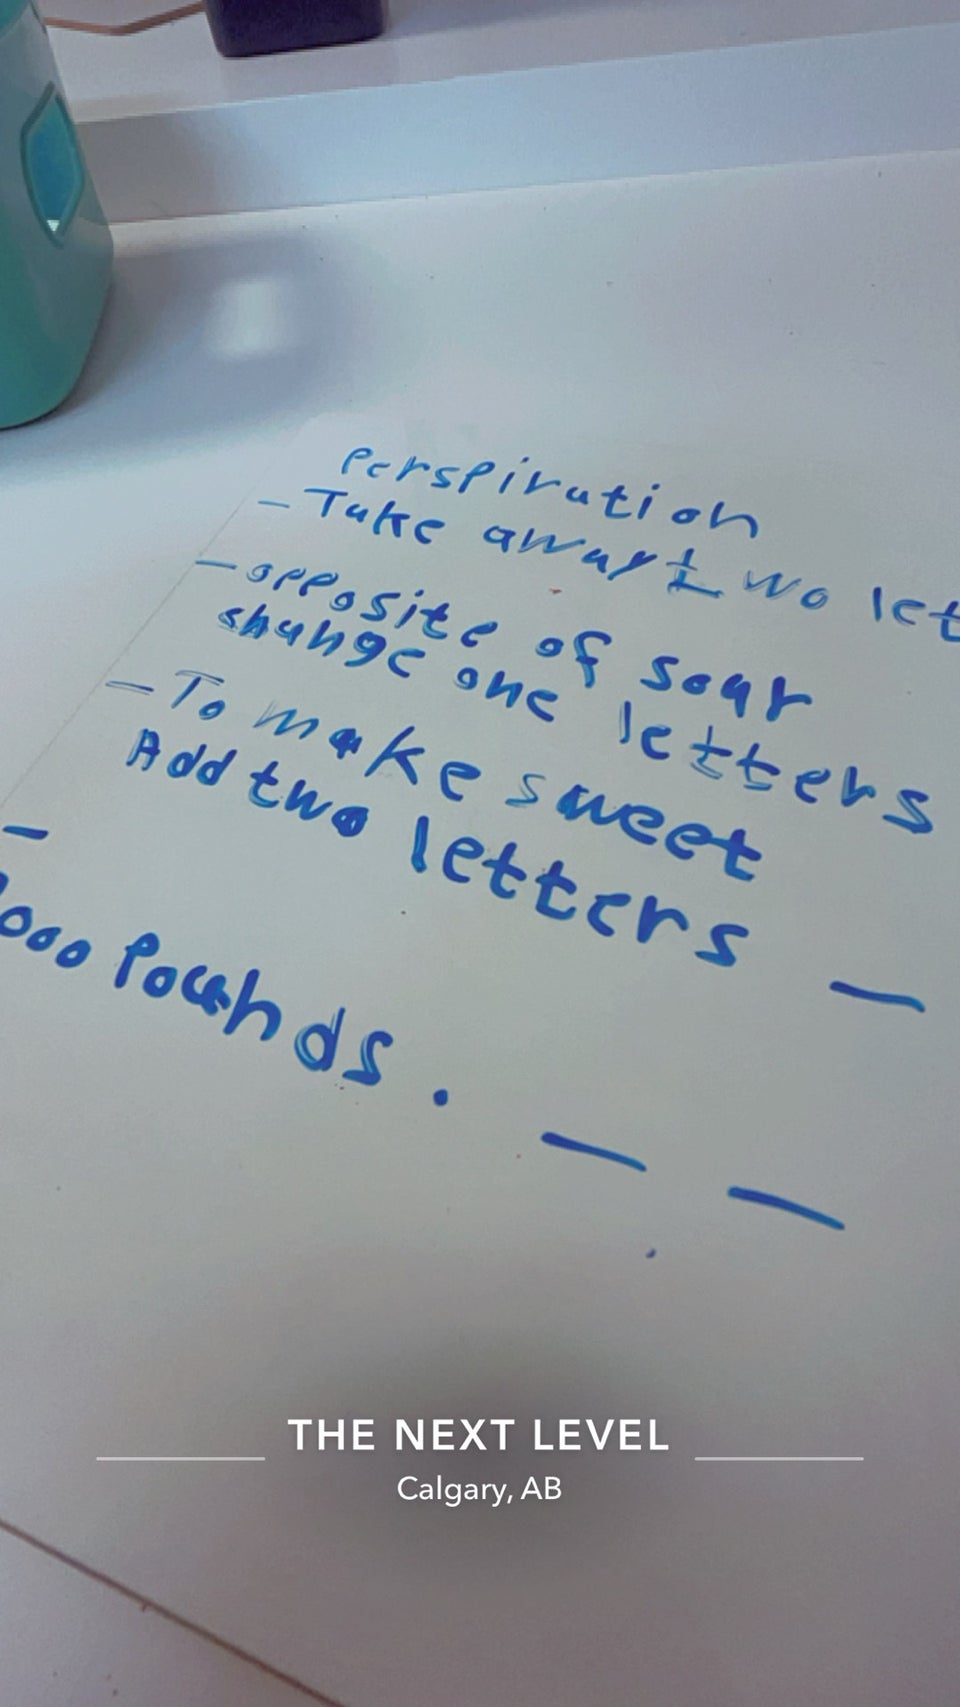 Perspiration
- Take away two let
- opposite of sour
change one letters
- To make sweet
Add two letters -
-
000 Pounds. - -
THE NEXT LEVEL
Calgary, AB